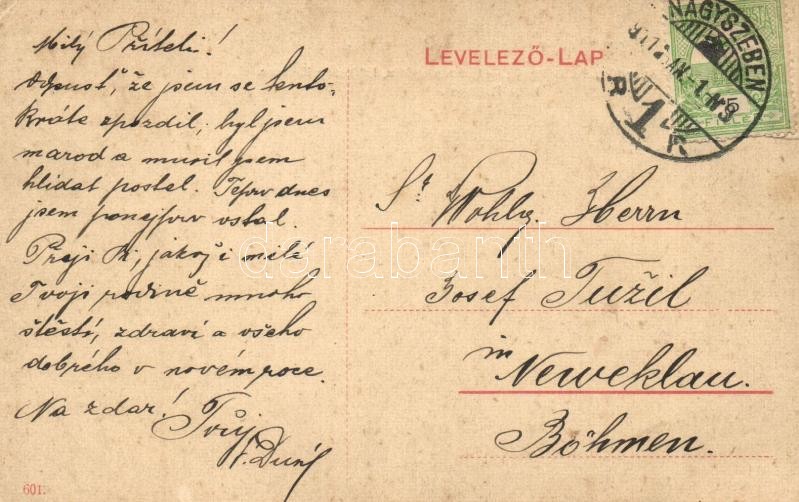 Milý Příteli!
Odpusť, že jsem se tento-
kráte zpozdil, byl jsem
marod a musil jsem
hlídat postel. Teprv dnes
jsem ponejprv vstal.
Přeji Ti, jakož i milé
Tvojí rodině mnoho
štěstí, zdraví a všeho
dobrého v novém roce.
Na zdar! Tvůj
601.
LEVELEZŐ-LAP
NAGYSZEBEN
Sr Wohlg. Herrn
Josef Tužil
in
Neweklau.
Böhmen.
darabanth.com